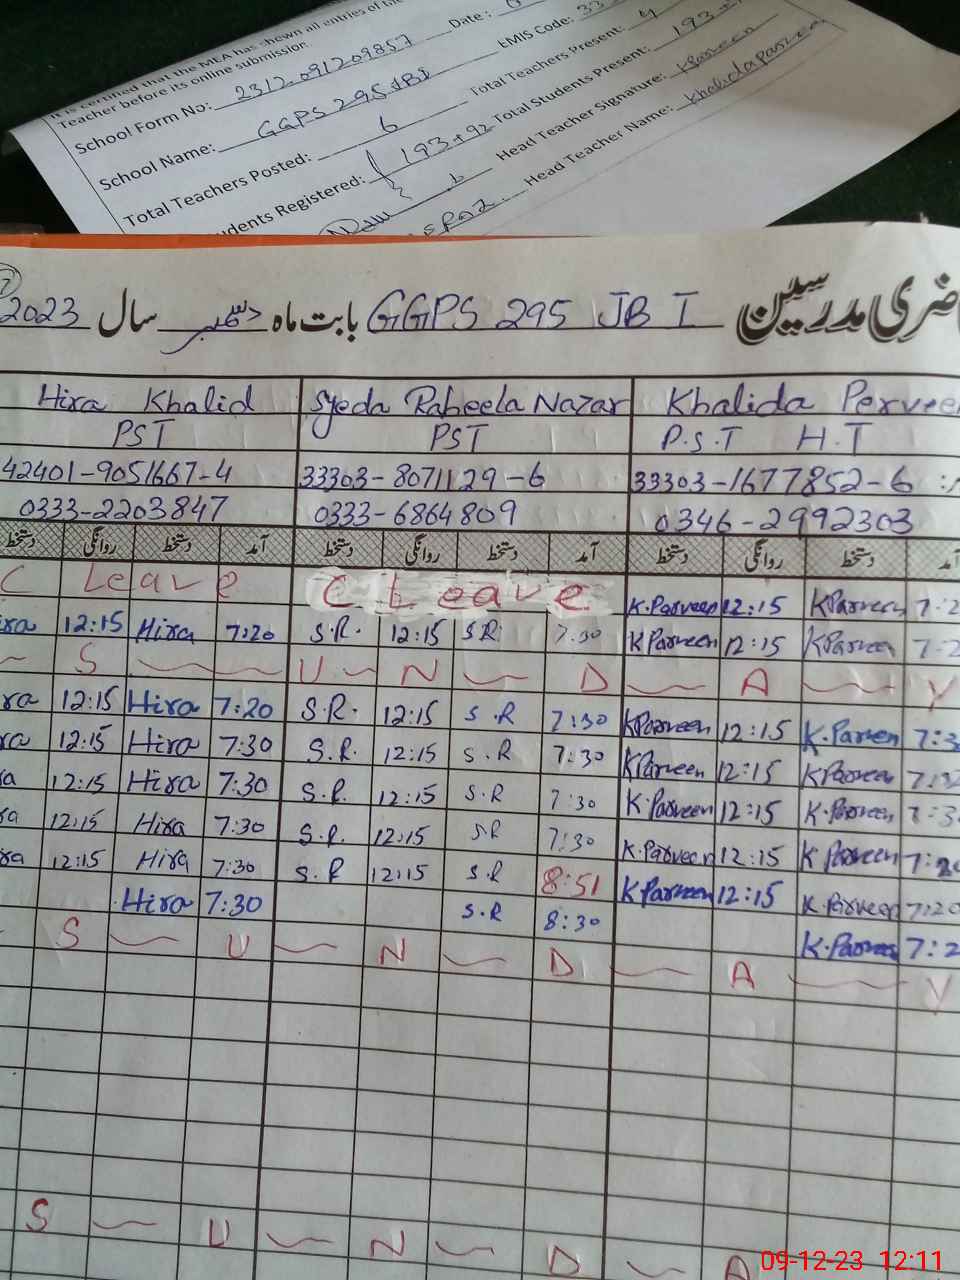 It is certified that the MEA has shown all entries of the
Teacher before its online submission. Date:
School Form No: 2312091209857 EMIS Code: 33
School Name: GGPS 295 JB I Total Teachers Present: 4
Total Teachers Posted: 6 Total Students Present: 193+
udents Registered: 193+92 Head Teacher Signature: KParveen
6 Head Teacher Name: Khalida Parveen
ضری مدرسین GGPS 295 JB I بابت ماہ دسمبر سال 2023
Hira Khalid Syeda Raheela Nazar Khalida Perveen
PST PST P.S.T H.T
42401-9051667-4 33303-8071129-6 33303-1677852-6
0333-2203847 0333-6864809 0346-2992303
دستخط روانگی دستخط آمد دستخط روانگی دستخط آمد دستخط روانگی دستخط آمد
C Leave C Leave K.Parveen 12:15 KParveen 7:2
ira 12:15 Hira 7:20 S.R. 12:15 S.R. 7:30 KParveen 12:15 KParveen 7:2
S U N D A Y
ra 12:15 Hira 7:20 S.R. 12:15 S.R 7:30 KParveen 12:15 K.Parveen 7:3
ra 12:15 Hira 7:30 S.R. 12:15 S.R 7:30 KParveen 12:15 KParveen 7:3
a 12:15 Hira 7:30 S.R. 12:15 S.R 7:30 K.Parveen 12:15 K.Parveen 7:3
ra 12:15 Hira 7:30 S.R. 12:15 S.R 7:30 K.Parveen 12:15 K Parveen 7:20
ra 12:15 Hira 7:30 S.R 12:15 S.R 8:51 K Parveen 12:15 K.Parveen 7:20
Hira 7:30 S.R 8:30 K.Parveen 7:2
S U N D A Y
S U N D A
09-12-23 12:11